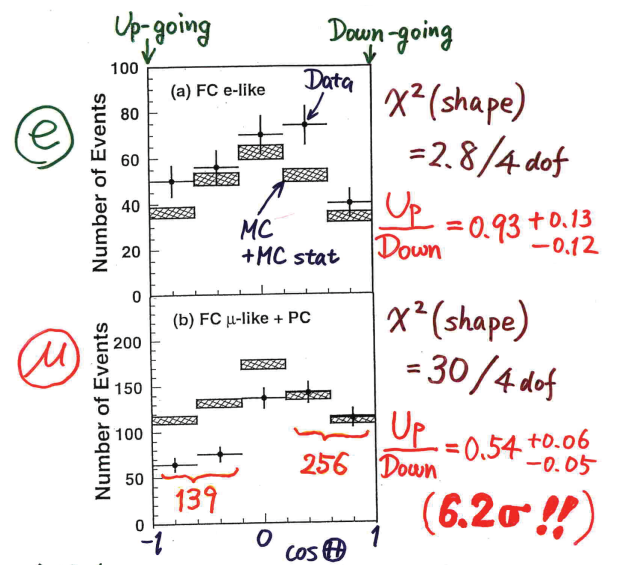 Up-going
Down-going
e
(a) FC e-like
Data
MC
+MC stat
Number of Events
100
80
60
40
20
0
χ² (shape)
= 2.8 / 4 dof
Up
Down
= 0.93 +0.13
-0.12
μ
(b) FC μ-like + PC
Number of Events
200
150
100
50
0
139
256
-1
0
1
cos Θ
χ² (shape)
= 30 / 4 dof
Up
Down
= 0.54 +0.06
-0.05
(6.2σ !!)